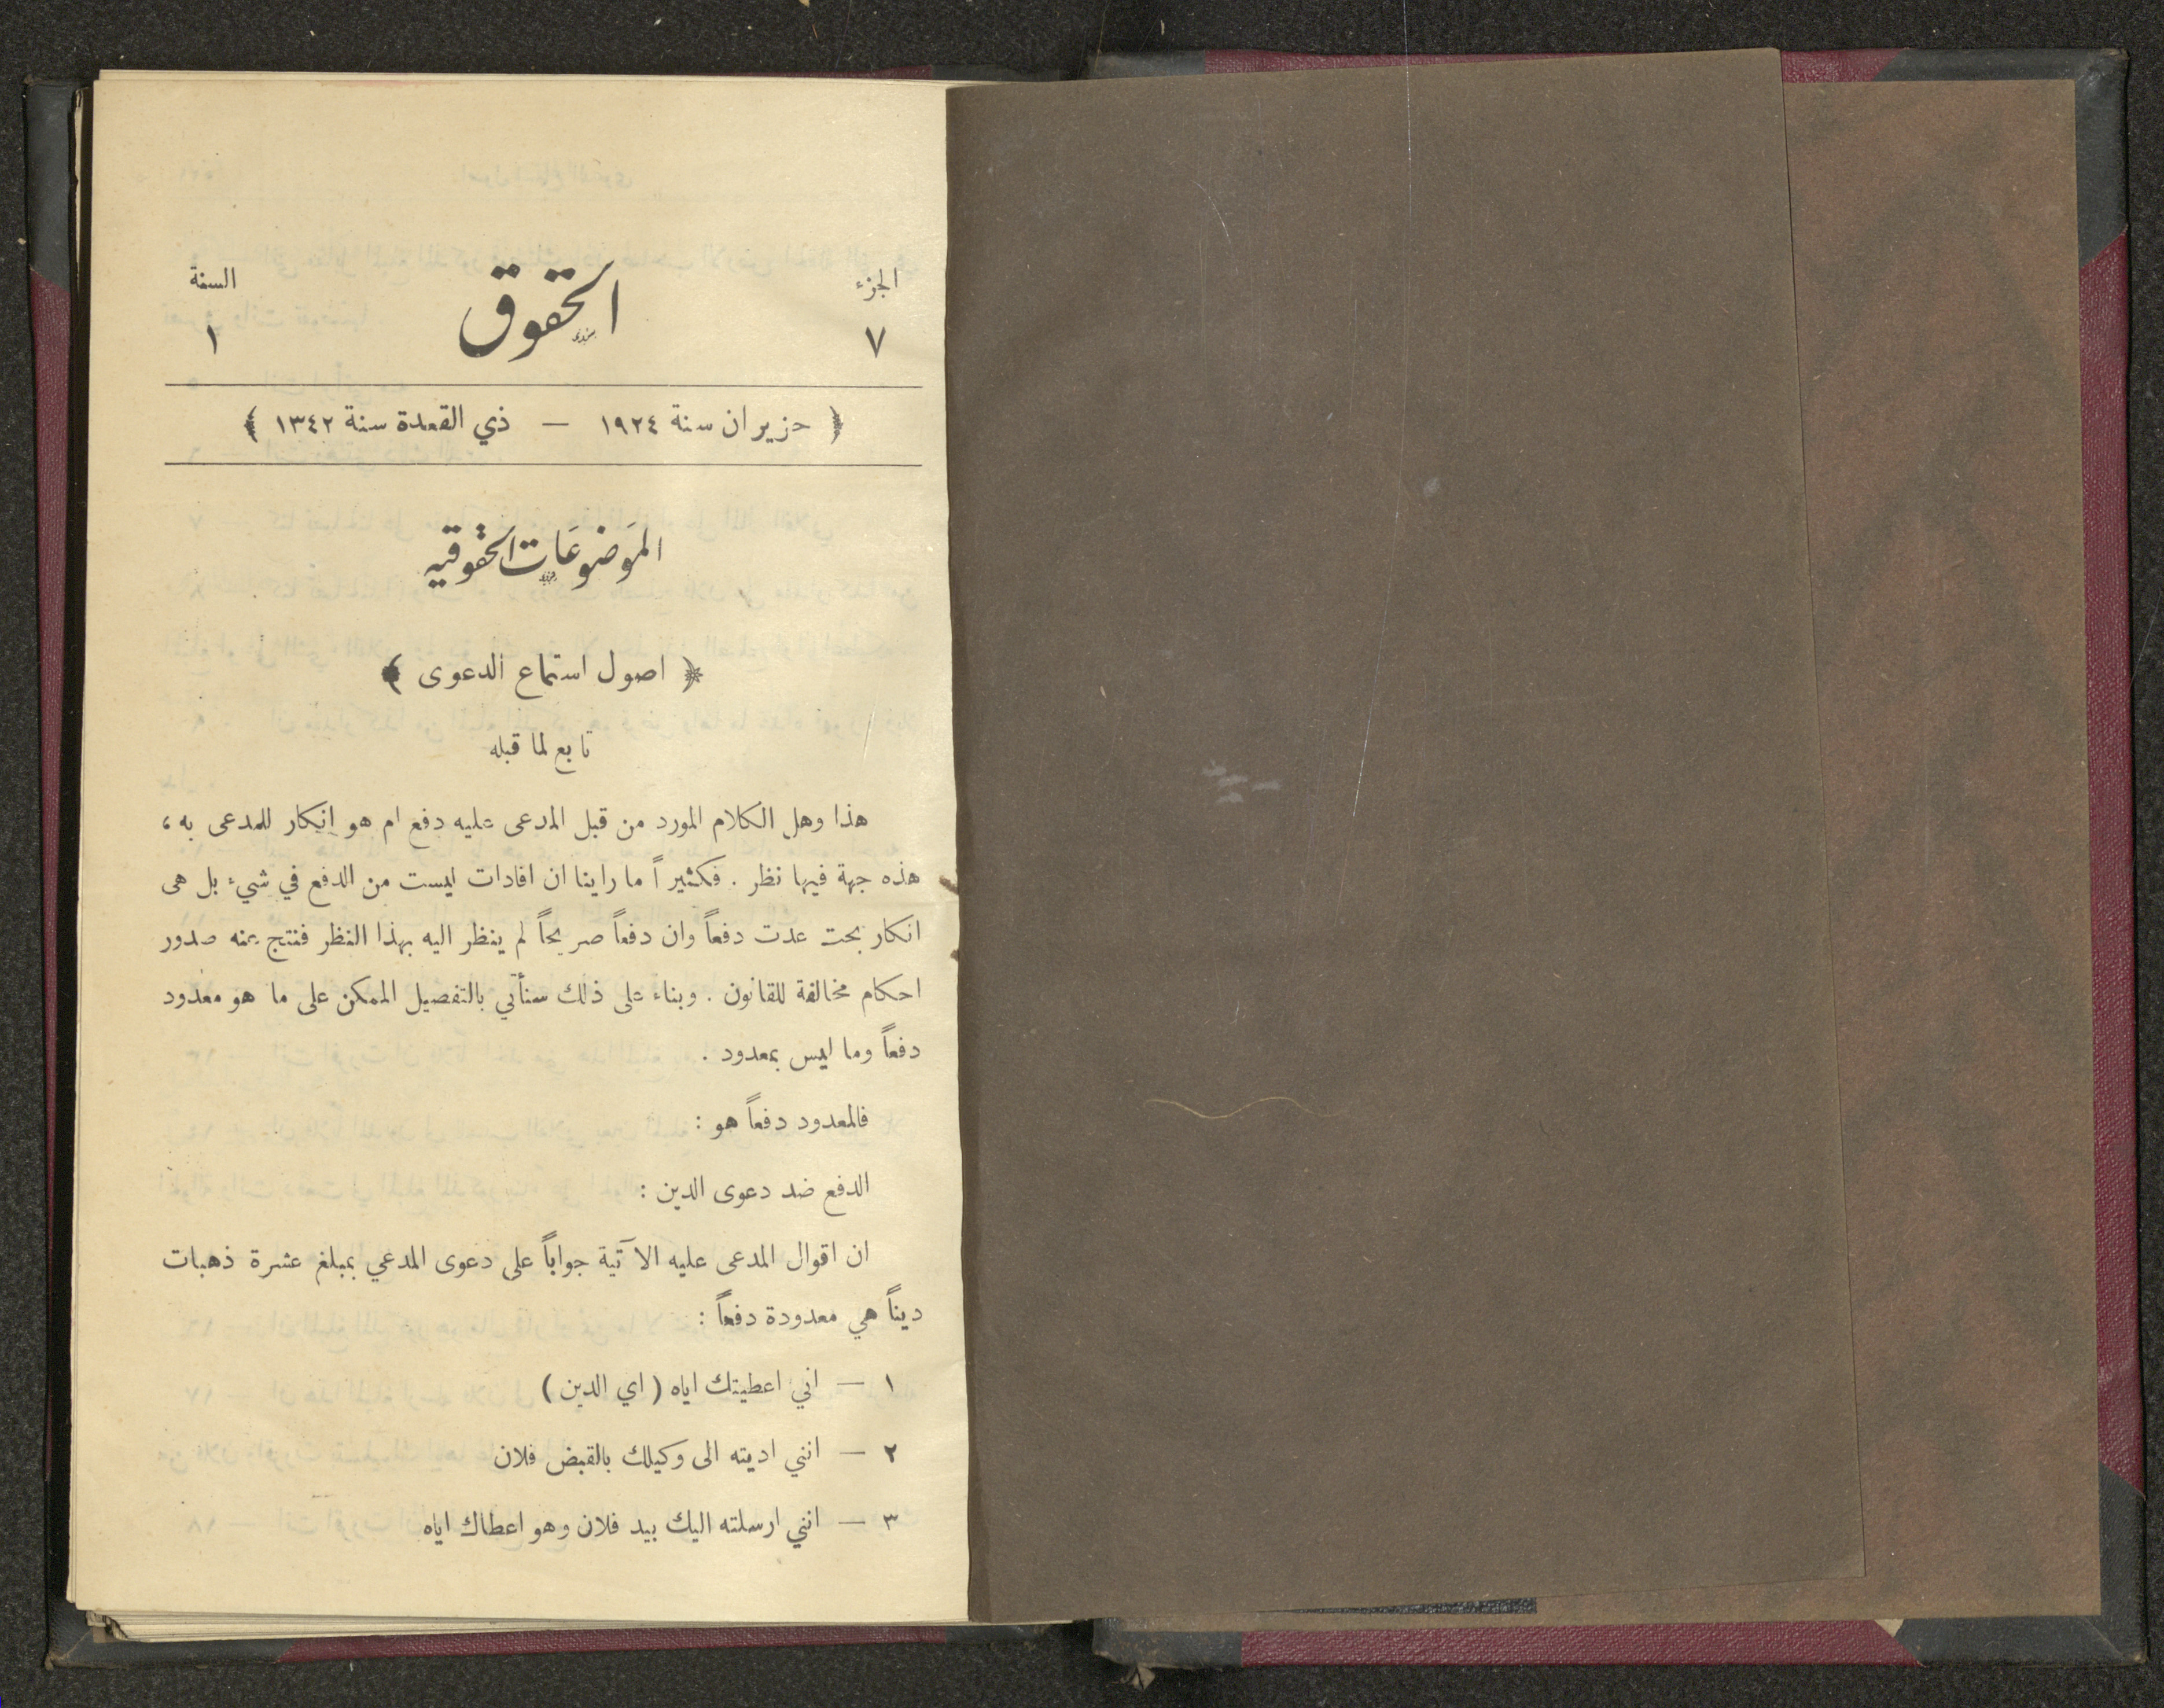 الجزء
٧
الحقوق
السنة
١
﴿ حزيران سنة ١٩٢٤ — ذي القعدة سنة ١٣٤٢ ﴾
الموَضوعَات الحقوقيه
﴿ اصول استماع الدعوى ﴾
تابع لما قبله
هذا وهل الكلام المورد من قبل المدعى عليه دفع ام هو إنكار للمدعى به ،
هذه جهة فيها نظر . فكثيراً ما راينا ان افادات ليست من الدفع في شيء بل هى
انكار بحت عدت دفعاً وان دفعاً صريحاً لم ينظر اليه بهذا النظر فنتج عنه صدور
احكام مخالفة للقانون . وبناء على ذلك سنأتي بالتفصيل الممكن على ما هو معدود
دفعاً وما ليس بمعدود .
فالمعدود دفعاً هو :
الدفع ضد دعوى الدين :
ان اقوال المدعى عليه الآتية جواباً على دعوى المدعي بمبلغ عشرة ذهبات
ديناً هي معدودة دفعاً :
١ — اني اعطيتك اياه ( اي الدين )
٢ — انني اديته الى وكيلك بالقبض فلان
٣ — انني ارسلته اليك بيد فلان وهو اعطاك اياه